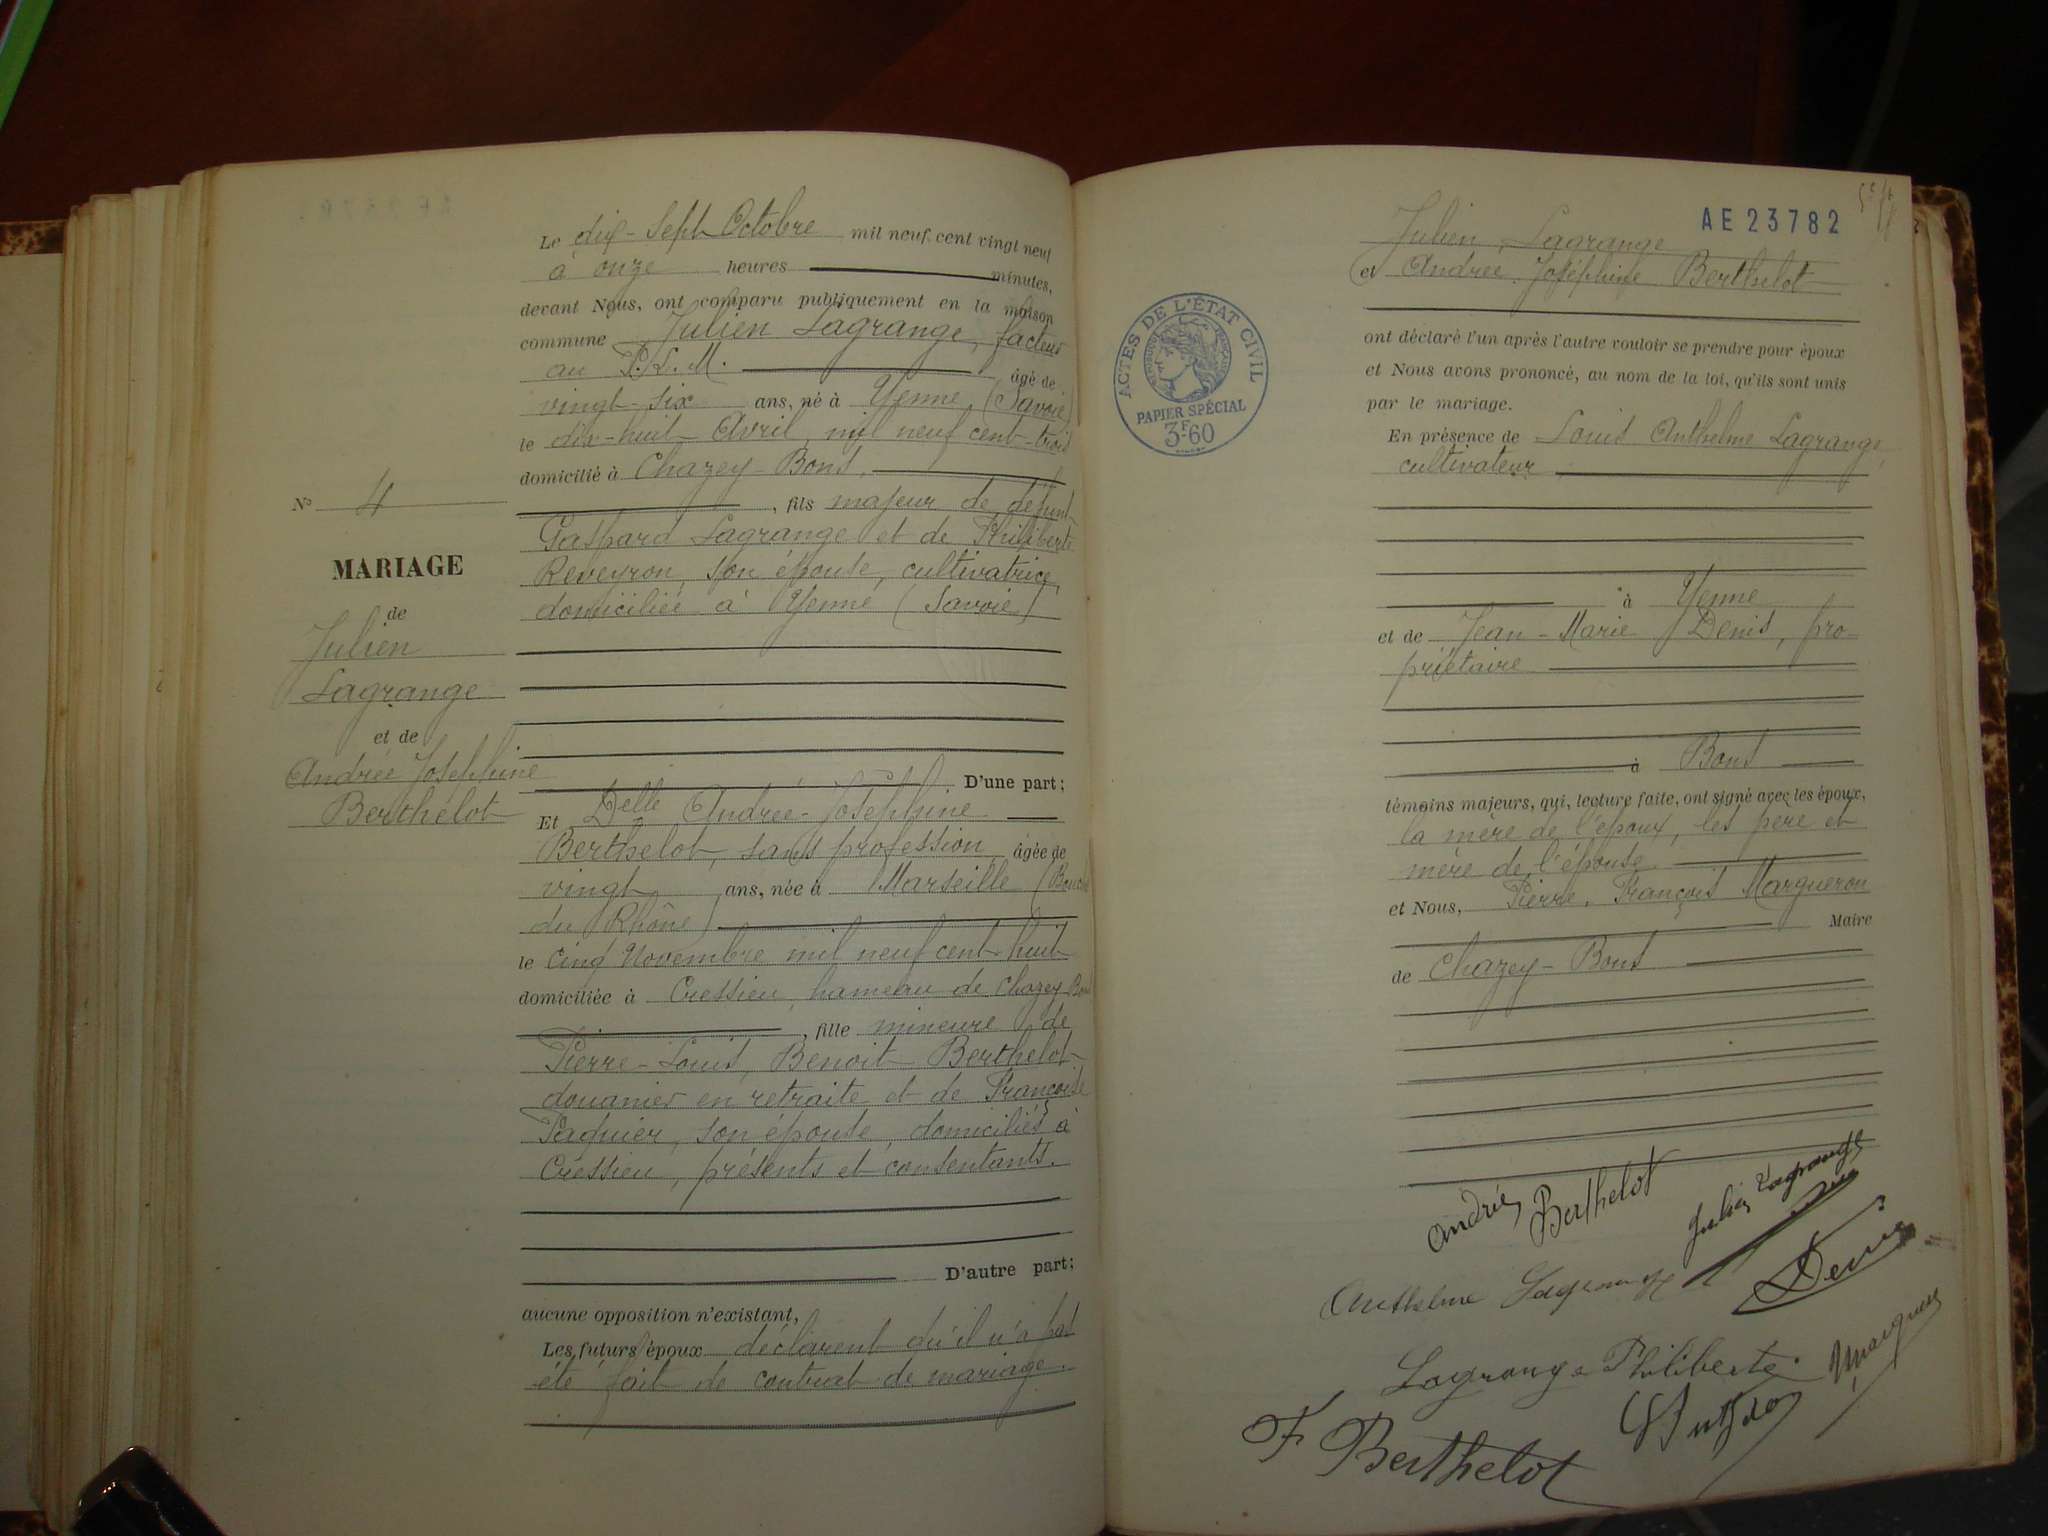 N° 4
MARIAGE
de
Julien
Lagrange
et de
Andrée Joséphine
Berthelot
Le dix-sept Octobre mil neuf cent vingt neuf
à onze heures minutes,
devant Nous, ont comparu publiquement en la maison
commune Julien Lagrange, facteur
au P.L.M. âgé de
vingt-six ans, né à Yenne (Savoie)
le dix-huit Avril mil neuf cent-trois
domicilié à Chazey-Bons,
, fils majeur de défunt
Gaspard Lagrange et de Philiberte
Reveyron, son épouse, cultivatrice,
domiciliée à Yenne (Savoie)
D'une part;
Et Delle Andrée-Joséphine
Berthelot, sans profession, âgée de
vingt ans, née à Marseille (Bouches
du Rhône)
le cinq Novembre mil neuf cent-huit
domiciliée à Cressieu, hameau de Chazey Bons
, fille mineure de
Pierre-Louis, Benoit Berthelot
douanier en retraite et de Françoise
Paquier, son épouse, domiciliés à
Cressieu, présents et consentants.
D'autre part;
aucune opposition n'existant,
Les futurs époux déclarent qu'il n'a pas
été fait de contrat de mariage.
AE 23782
Julien Lagrange
et Andrée Joséphine Berthelot
ACTES DE L'ÉTAT CIVIL
RÉPUBLIQUE FRANÇAISE
PAPIER SPÉCIAL
3F.60
ont déclaré l'un après l'autre vouloir se prendre pour époux
et Nous avons prononcé, au nom de la loi, qu'ils sont unis
par le mariage.
En présence de Louis Anthelme Lagrange,
cultivateur
à Yenne
et de Jean-Marie Denis, pro-
priétaire
à Bons
témoins majeurs, qui, lecture faite, ont signé avec les époux,
la mère de l'époux, les père et
mère de l'épouse
et Nous, Pierre, François Margueron
Maire
de Chazey-Bons
Andrée Berthelot
Julien Lagrange
Anthelme Lagrange
Denis
Lagrange Philiberte
F Berthelot